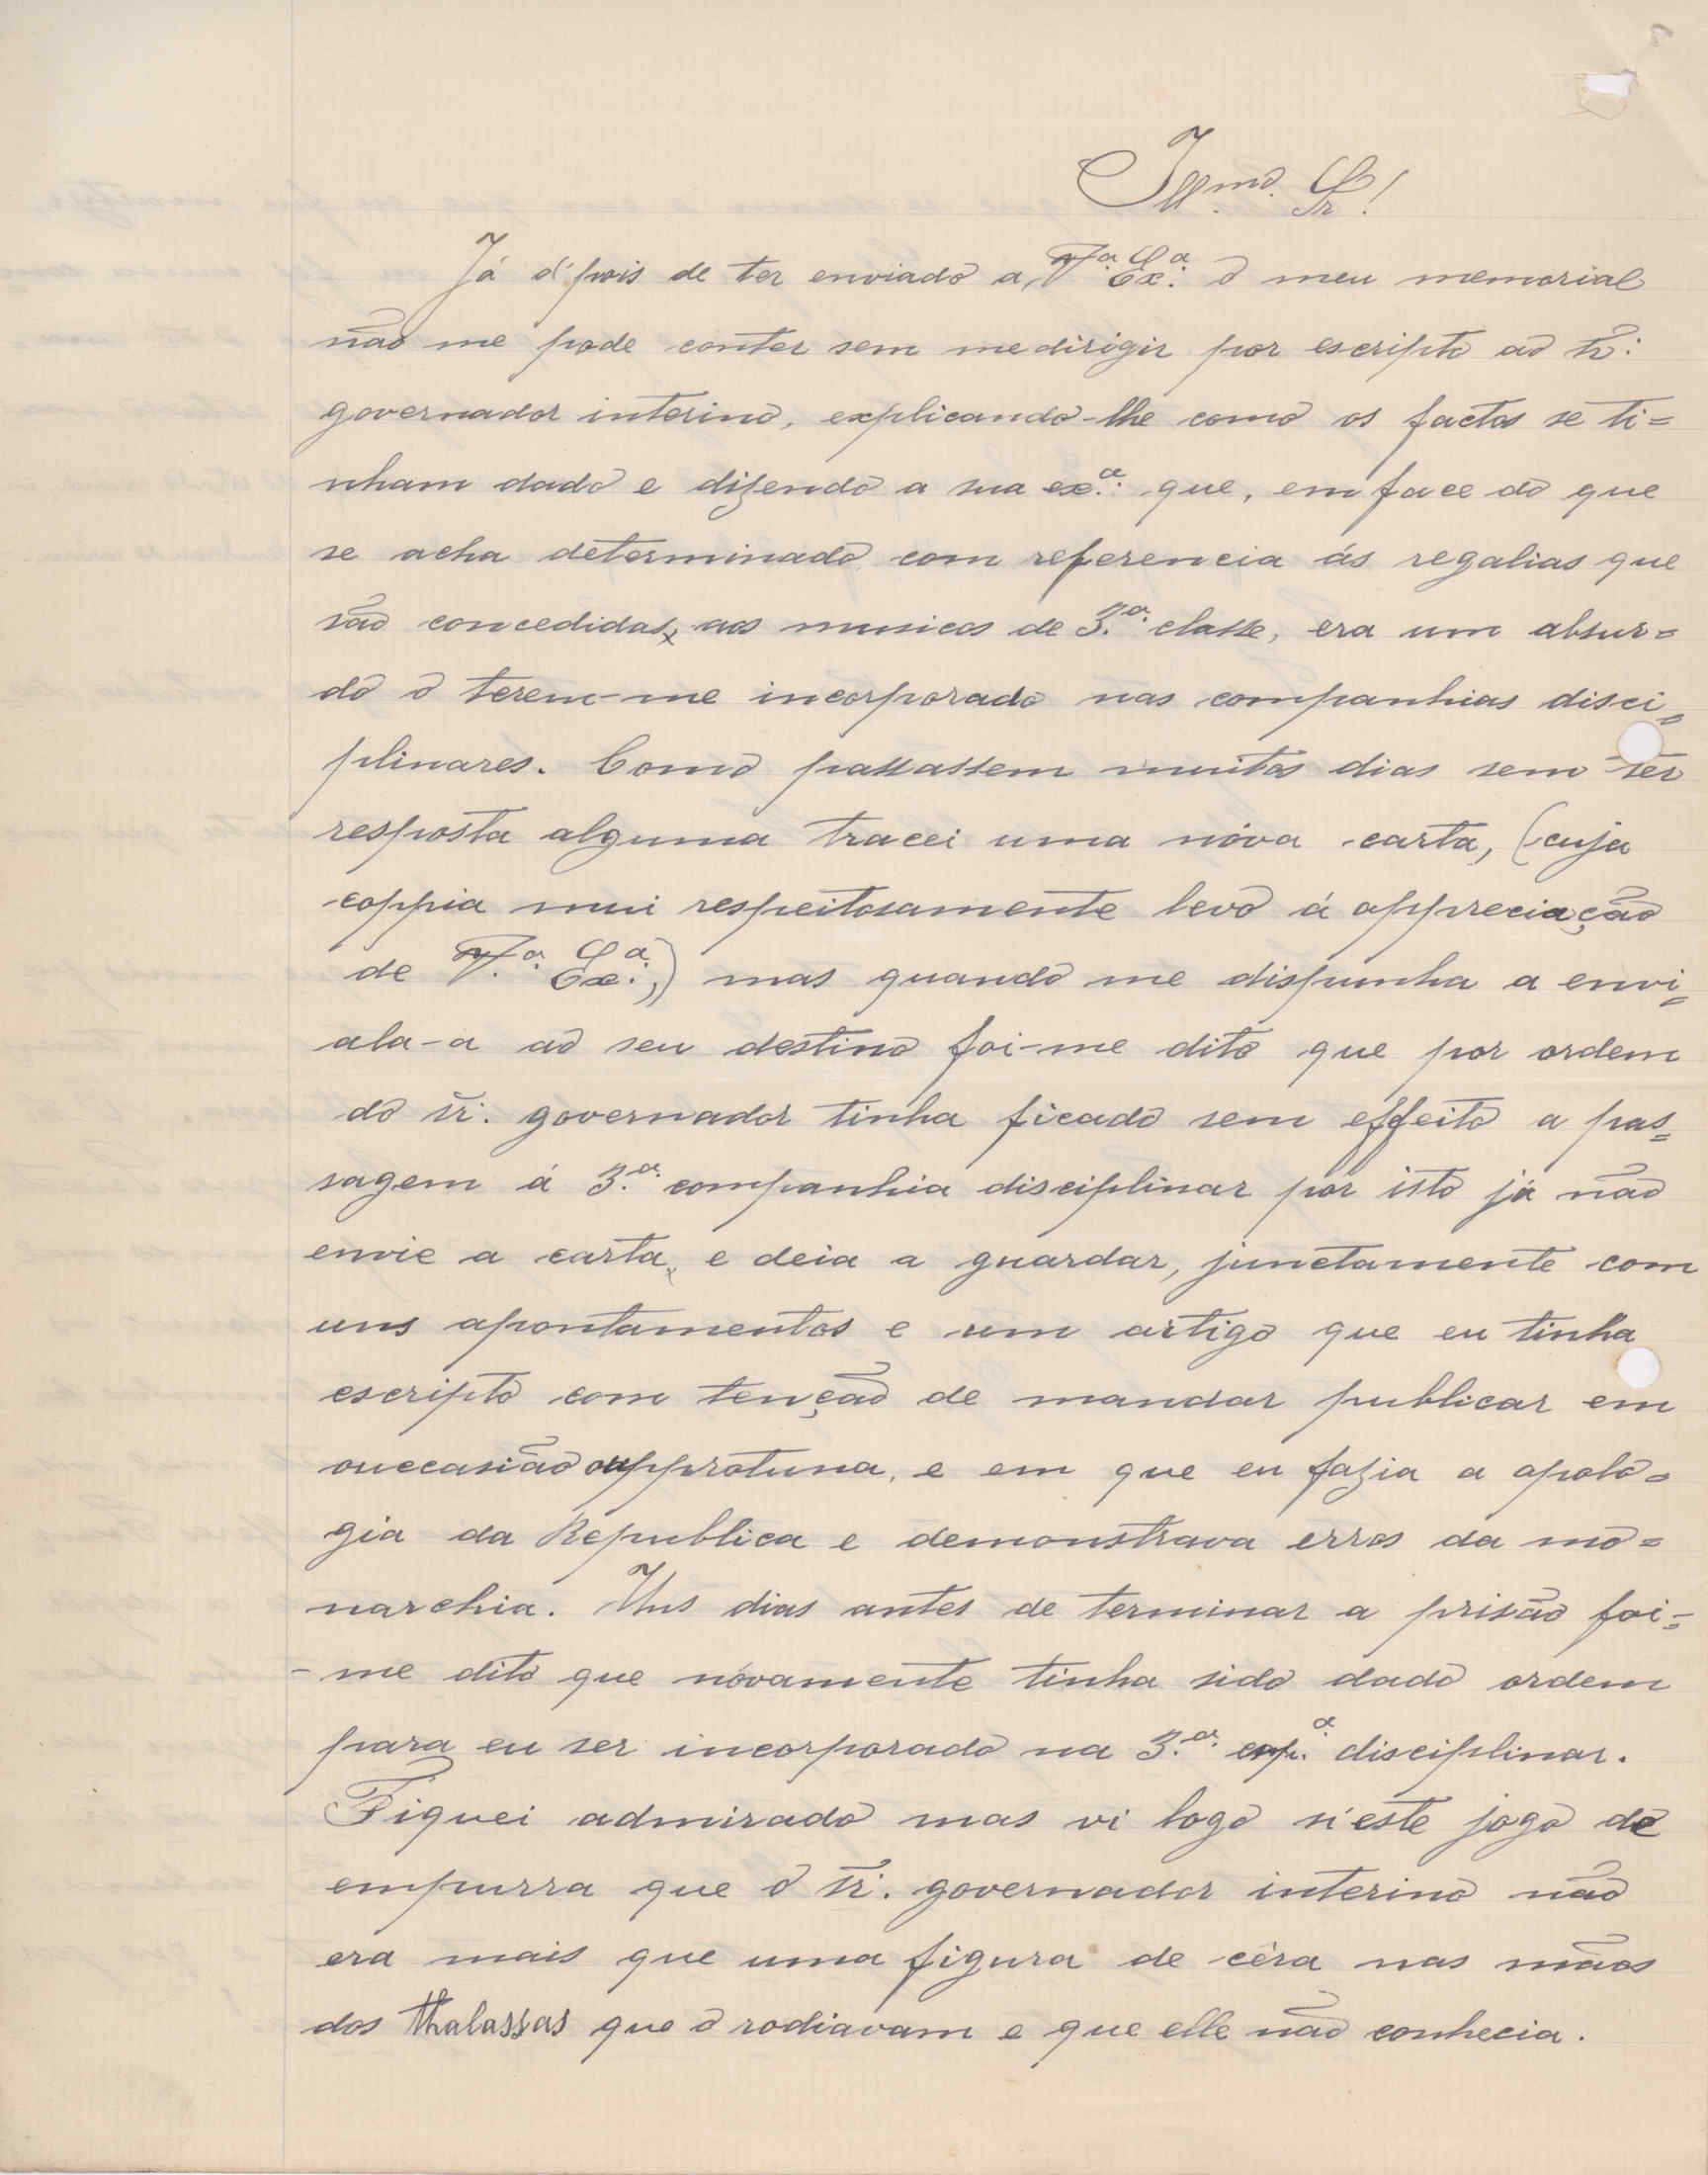 Illmo. Sr!
Já d'pois de ter enviado a, V.ª Ex.ª o meu memorial
não me pode conter sem me dirigir por escripto ao sr.
governador interino, explicando-lhe como os factos se ti=
nham dado e dizendo a sua ex.ª que, em face do que
se acha determinado com referencia ás regalias que
são concedidas, aos musicos de 3.ª classe, era um absur=
do o terem-me incorporado nas companhias disci=
plinares. Como passassem muitos dias sem ter
resposta alguma tracei uma nóva carta, (cuja
coppia mui respeitosamente levo á appreciação
de V.ª Ex.ª,) mas quando me dispunha a envi=
ala-a ao seu destino foi-me dito que por ordem
do sr. governador tinha ficado sem effeito a pas=
sagem á 3.ª companhia disciplinar por isto já não
envie a carta, e deia a guardar, junctamente com
uns apontamentos e um artigo que eu tinha
escripto com tenção de mandar publicar em
ouccasião oupprotuna, e em que eu fazia a apolo=
gia da Republica e demonstrava erros da mo=
narchia. Uns dias antes de terminar a prisão foi=
-me dito que nóvamente tinha sido dado ordem
para eu ser incorporado na 3.ª cop.ª disciplinar.
Fiquei admirado mas vi logo n'este jogo de
empurra que o sr. governador interino não
era mais que uma figura de cêra nas mãos
dos thalassas que o rodiavam e que elle não conhecia.